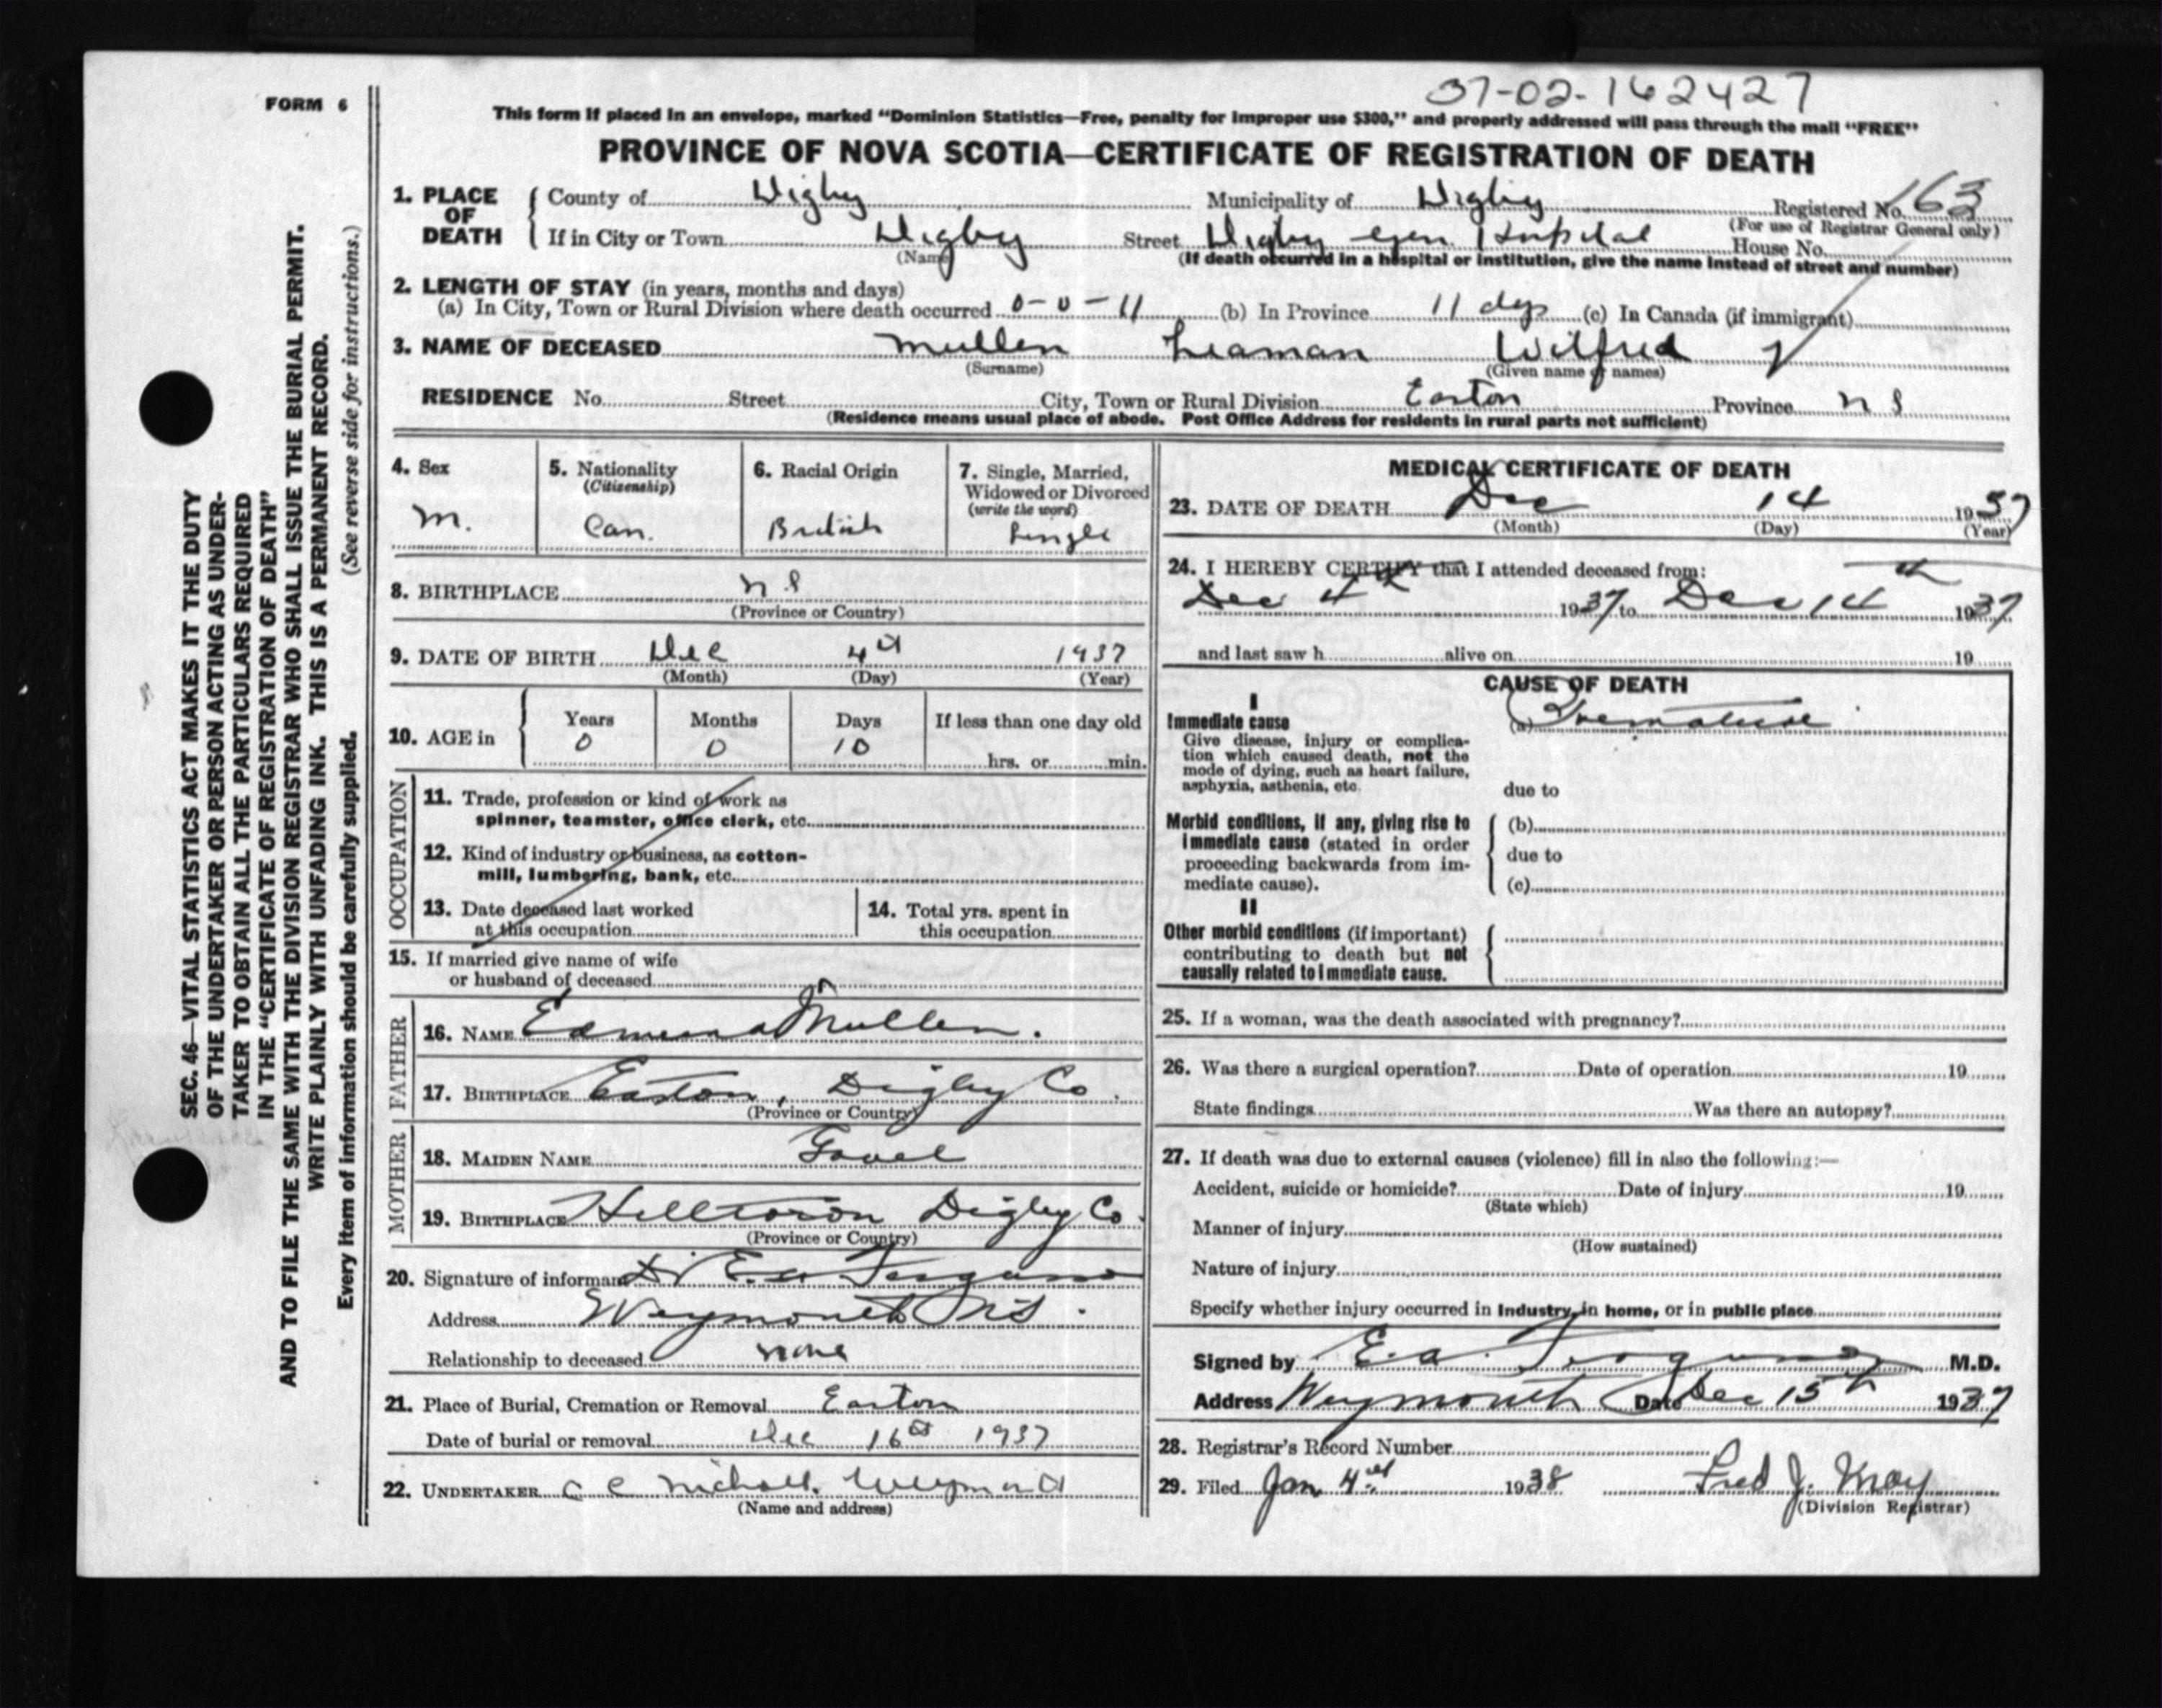 37-02-162427
FORM 6
This form if placed in an envelope, marked "Dominion Statistics—Free, penalty for improper use $300," and properly addressed will pass through the mail "FREE"
PROVINCE OF NOVA SCOTIA—CERTIFICATE OF REGISTRATION OF DEATH
1. PLACE OF DEATH County of Digby Municipality of Digby Registered No. 163
(For use of Registrar General only)
If in City or Town Digby Street Digby Gen Hospital House No.
(Name) (If death occurred in a hospital or institution, give the name instead of street and number)
2. LENGTH OF STAY (in years, months and days)
(a) In City, Town or Rural Division where death occurred 0-0-11 (b) In Province 11 dys (c) In Canada (if immigrant)
3. NAME OF DECEASED Mullen Leaman Wilfred
(Surname) (Given name or names)
RESIDENCE No. Street City, Town or Rural Division Easton Province N S
(Residence means usual place of abode. Post Office Address for residents in rural parts not sufficient)
4. Sex M.
5. Nationality (Citizenship) Can.
6. Racial Origin British
7. Single, Married, Widowed or Divorced (write the word) Single
8. BIRTHPLACE N S
(Province or Country)
9. DATE OF BIRTH Dec 4th 1937
(Month) (Day) (Year)
10. AGE in Years 0 Months 0 Days 10 If less than one day old hrs. or min.
OCCUPATION
11. Trade, profession or kind of work as
spinner, teamster, office clerk, etc.
12. Kind of industry or business, as cotton-
mill, lumbering, bank, etc.
13. Date deceased last worked
at this occupation
14. Total yrs. spent in
this occupation
15. If married give name of wife
or husband of deceased
FATHER
16. NAME Edmund Mullen.
17. BIRTHPLACE Easton, Digby Co.
(Province or Country)
MOTHER
18. MAIDEN NAME
19. BIRTHPLACE Hilltown Digby Co.
(Province or Country)
20. Signature of informant Dr E. A.
Address Weymouth N.S.
Relationship to deceased none
21. Place of Burial, Cremation or Removal Easton
Date of burial or removal Dec 16th 1937
22. UNDERTAKER C C Weymouth
(Name and address)
MEDICAL CERTIFICATE OF DEATH
23. DATE OF DEATH Dec 14 1937
(Month) (Day) (Year)
24. I HEREBY CERTIFY that I attended deceased from:
Dec 4th 1937 to Dec 14th 1937
and last saw h alive on 19
CAUSE OF DEATH
I
Immediate cause (a) Premature
Give disease, injury or complica-
tion which caused death, not the
mode of dying, such as heart failure,
asphyxia, asthenia, etc.
due to
Morbid conditions, if any, giving rise to (b)
immediate cause (stated in order due to
proceeding backwards from im-
mediate cause). (c)
II
Other morbid conditions (if important)
contributing to death but not
causally related to immediate cause.
25. If a woman, was the death associated with pregnancy?
26. Was there a surgical operation? Date of operation 19
State findings Was there an autopsy?
27. If death was due to external causes (violence) fill in also the following:—
Accident, suicide or homicide? Date of injury 19
(State which)
Manner of injury
(How sustained)
Nature of injury
Specify whether injury occurred in industry, in home, or in public place
Signed by E. A. M.D.
Address Weymouth Date Dec 15th 1937
28. Registrar's Record Number
29. Filed Jan 4th 1938 Fred J. May
(Division Registrar)
SEC. 46—VITAL STATISTICS ACT MAKES IT THE DUTY
OF THE UNDERTAKER OR PERSON ACTING AS UNDER-
TAKER TO OBTAIN ALL THE PARTICULARS REQUIRED
IN THE "CERTIFICATE OF REGISTRATION OF DEATH"
AND TO FILE THE SAME WITH THE DIVISION REGISTRAR WHO SHALL ISSUE THE BURIAL PERMIT.
WRITE PLAINLY WITH UNFADING INK. THIS IS A PERMANENT RECORD.
Every item of information should be carefully supplied. (See reverse side for instructions.)